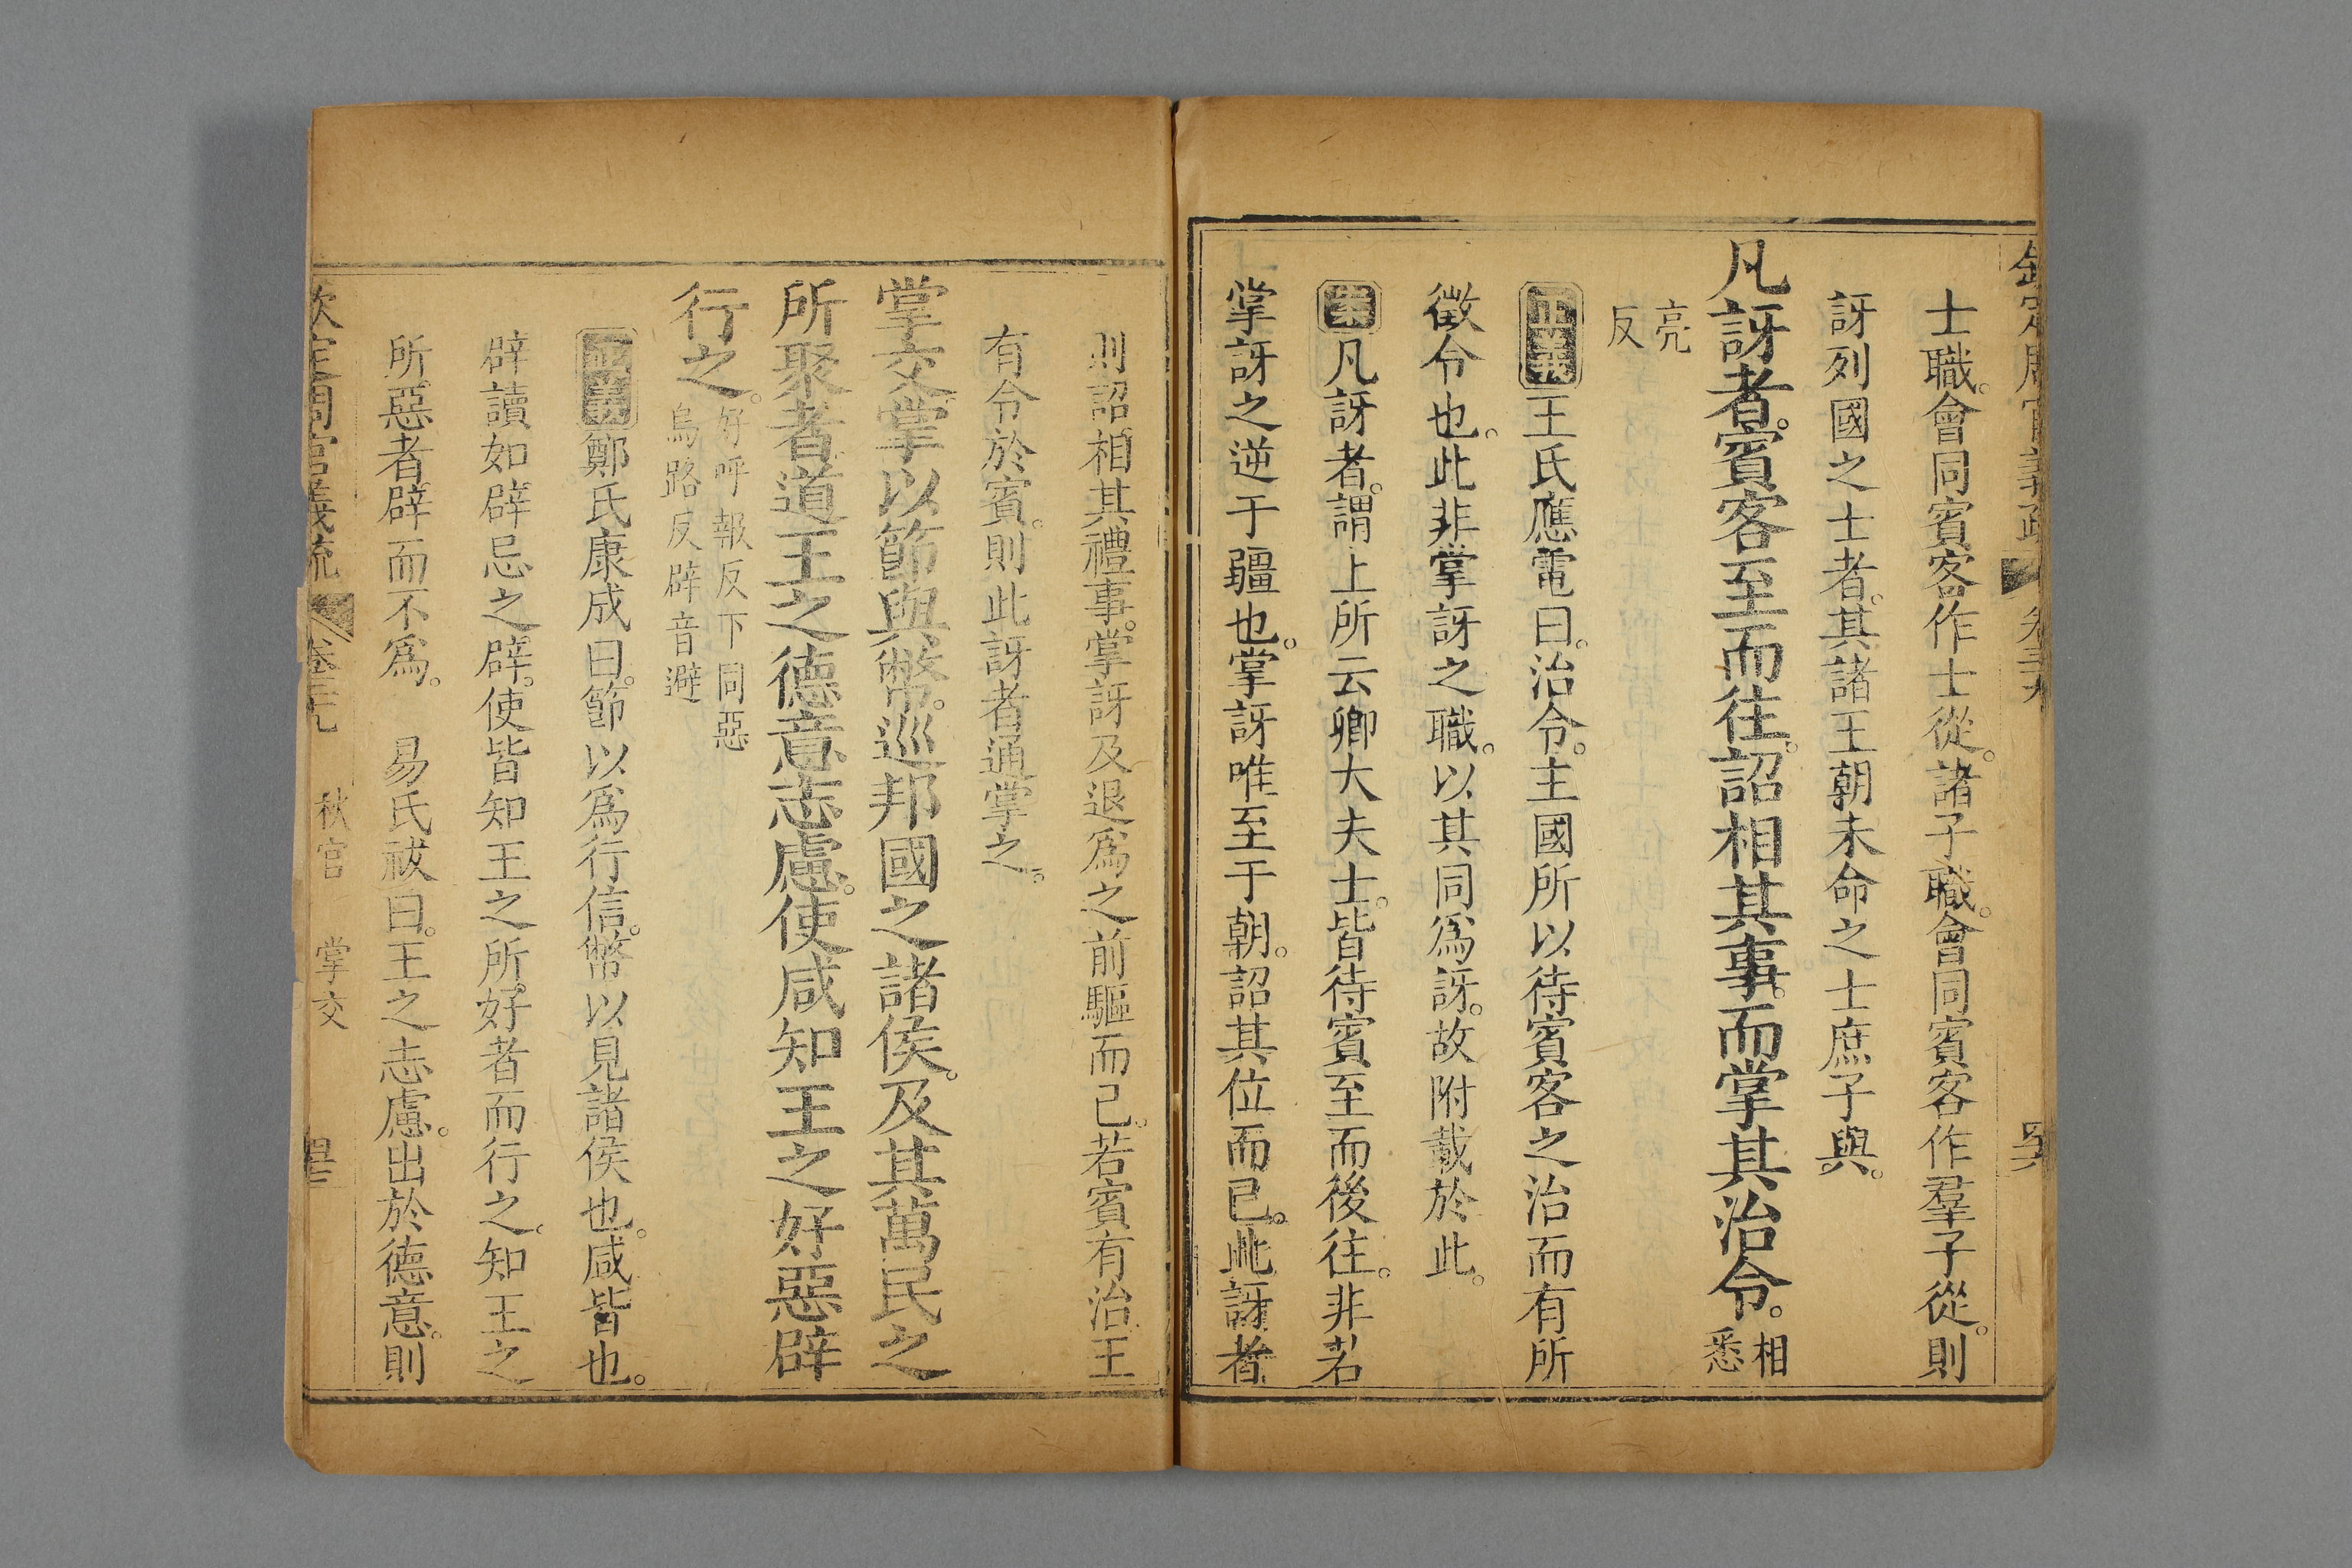 欽定周官義疏 卷三十九
士職會同賓客作士從。諸子職。會同賓客作羣子從。則
訝列國之士者。其諸王朝未命之士庶子與。
凡訝者。賓客至而往。詔相其事。而掌其治令。相悉
亮反
正義王氏應電曰。治令。主國所以待賓客之治而有所
徵令也。此非掌訝之職。以其同爲訝。故附載於此。
案凡訝者。謂上所云卿大夫士。皆待賓至而後往。非若
掌訝之逆于疆也。掌訝唯至于朝。詔其位而已。此訝者
則詔相其禮事。掌訝及退爲之前驅而已。若賓有治王
有令於賓。則此訝者通掌之。
掌交掌以節與幣。巡邦國之諸侯。及其萬民之
所聚者道王之德意志慮。使咸知王之好惡辟
行之。好呼報反下同惡
烏路反辟音避
正義鄭氏康成曰。節以爲行信。幣以見諸侯也。咸皆也。
辟讀如辟忌之辟。使皆知王之所好者而行之。知王之
所惡者辟而不爲。 易氏祓曰。王之志慮。出於德意。則
欽定周官義疏 卷三十九 秋官 掌交